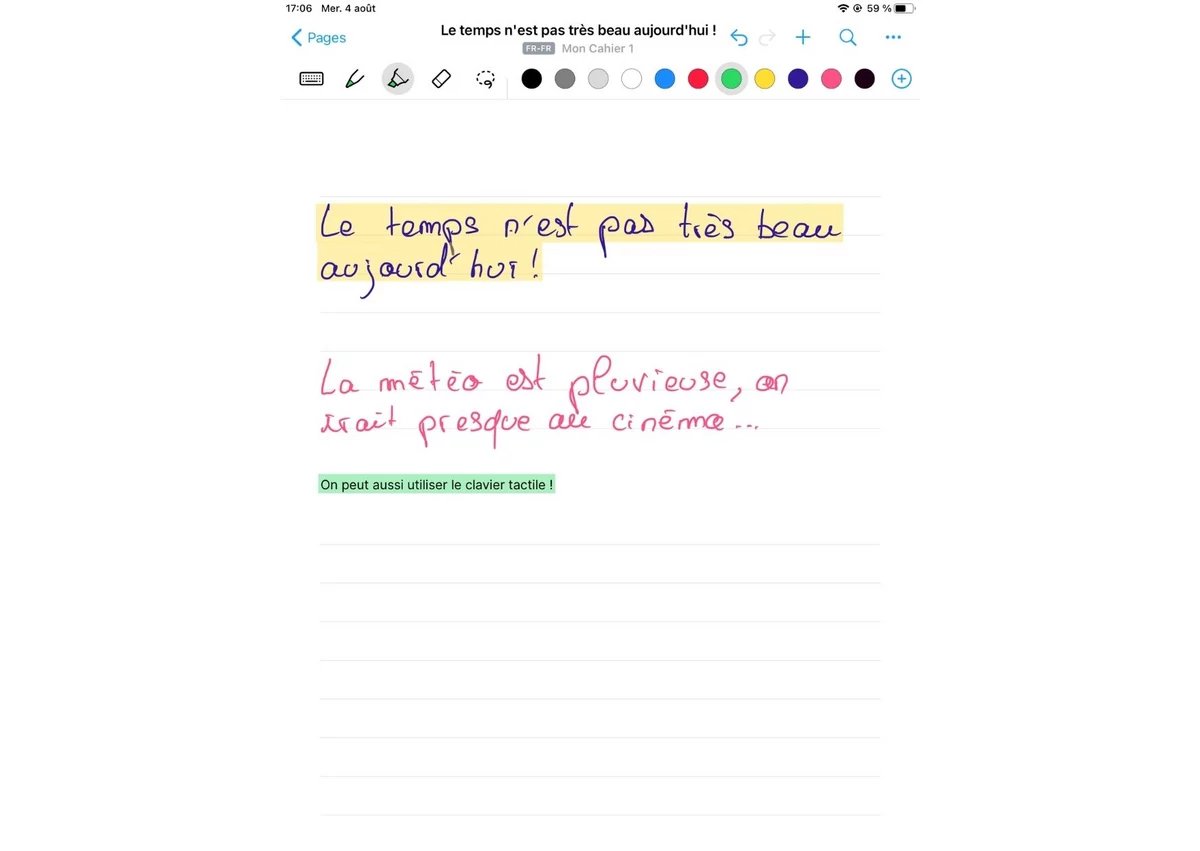 17:06 Mer. 4 août 59 %
Pages Le temps n'est pas très beau aujourd'hui !
FR-FR Mon Cahier 1
Le temps n'est pas très beau
aujourd'hui !
La météo est pluvieuse, on
irait presque au cinéma...
On peut aussi utiliser le clavier tactile !